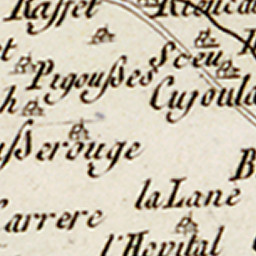 Raffet
Sceu
Pigousses
Cujoula
usserouge
la Lane
Carrere
l'Hopital